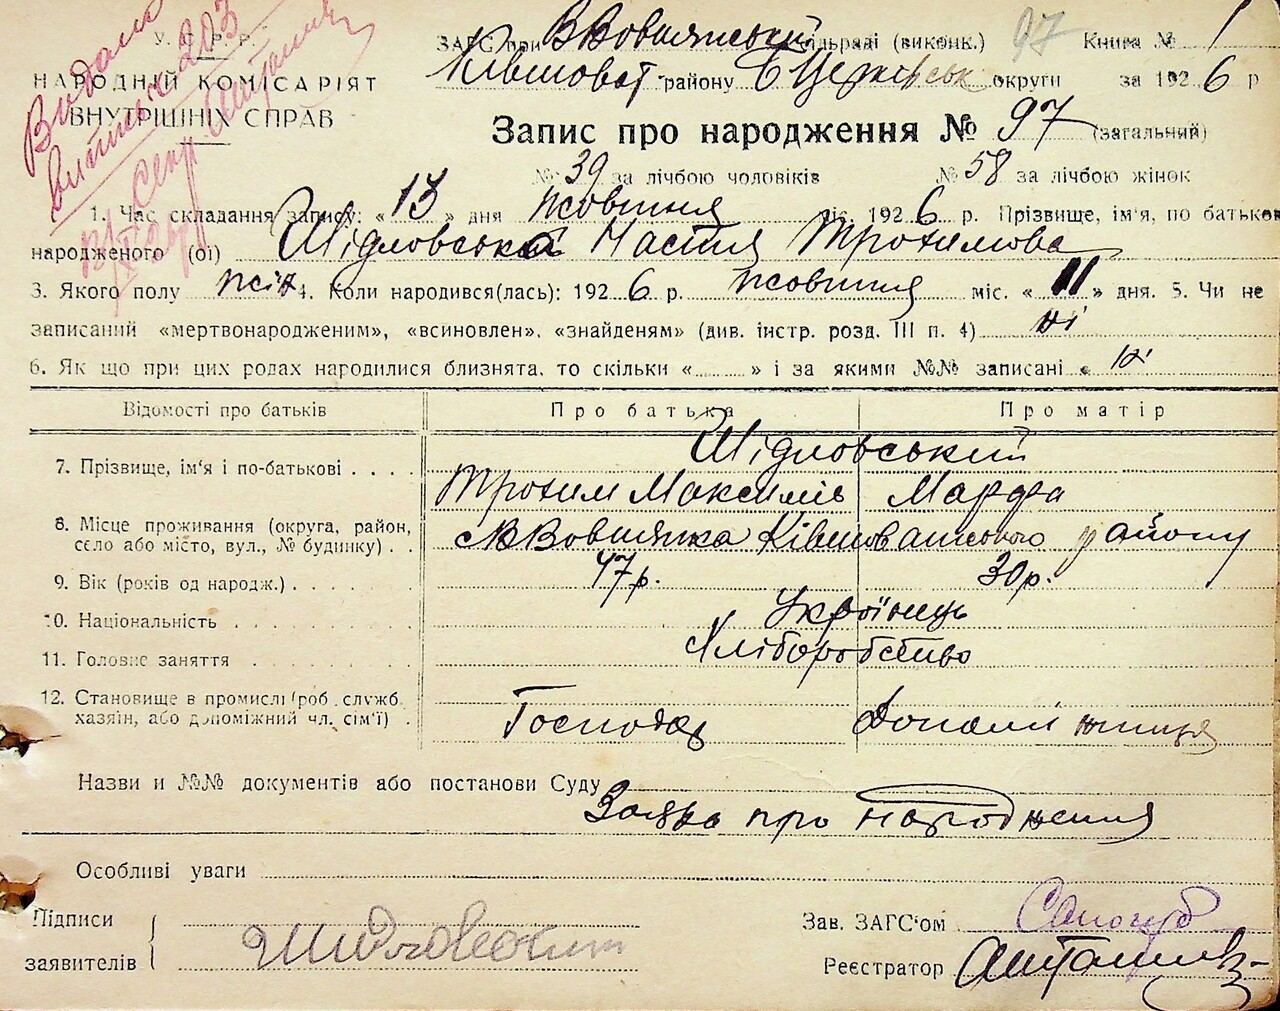 У. С. Р. Р.
НАРОДНІЙ КОМІСАРІЯТ
ВНУТРІШНІХ СПРАВ
Видана
ЗАГС при В Вовнянський сільраді (виконк.) 97 Книга № 1
Ківшоват. району Б Церківськ округи за 1926 р
Запис про народження № 97 (загальний)
№ 39 за лічбою чоловіків № 58 за лічбою жінок
1. Час складання запису: «13» дня жовтня міс. 1926 р. Прізвище, ім'я, по батькові
народженого (ої) Шідловська Настя Трохимова
3. Якого полу жін 4. Коли народився(лась): 1926 р. жовтня міс. «11» дня. 5. Чи не
записаний «мертвонародженим», «всиновлен», «знайденям» (див. інстр. розд. III п. 4) ні
6. Як що при цих родах народилися близнята, то скільки « » і за якими №№ записані « ні
Відомості про батьків Про батька Про матір
7. Прізвище, ім'я і по-батькові . . . . Шідловський
Трохим Максимів Марфа
8. Місце проживання (округа, район,
село або місто, вул., № будинку) . . В Вовнянка Ківшоватського району
9. Вік (років од народж.) . . . . . . 47 р. 30 р.
10. Національність . . . . . . . . Українець
11. Головне заняття . . . . . . . Хліборобство
12. Становище в промислі (роб. служб.
хазяїн, або допоміжний чл. сім'ї) . Господар Допоміжниця
Назви и №№ документів або постанови Суду
Заява про народження
Особливі уваги
Підписи
заявителів Шидловский
Зав. ЗАГС'ом
Реєстратор